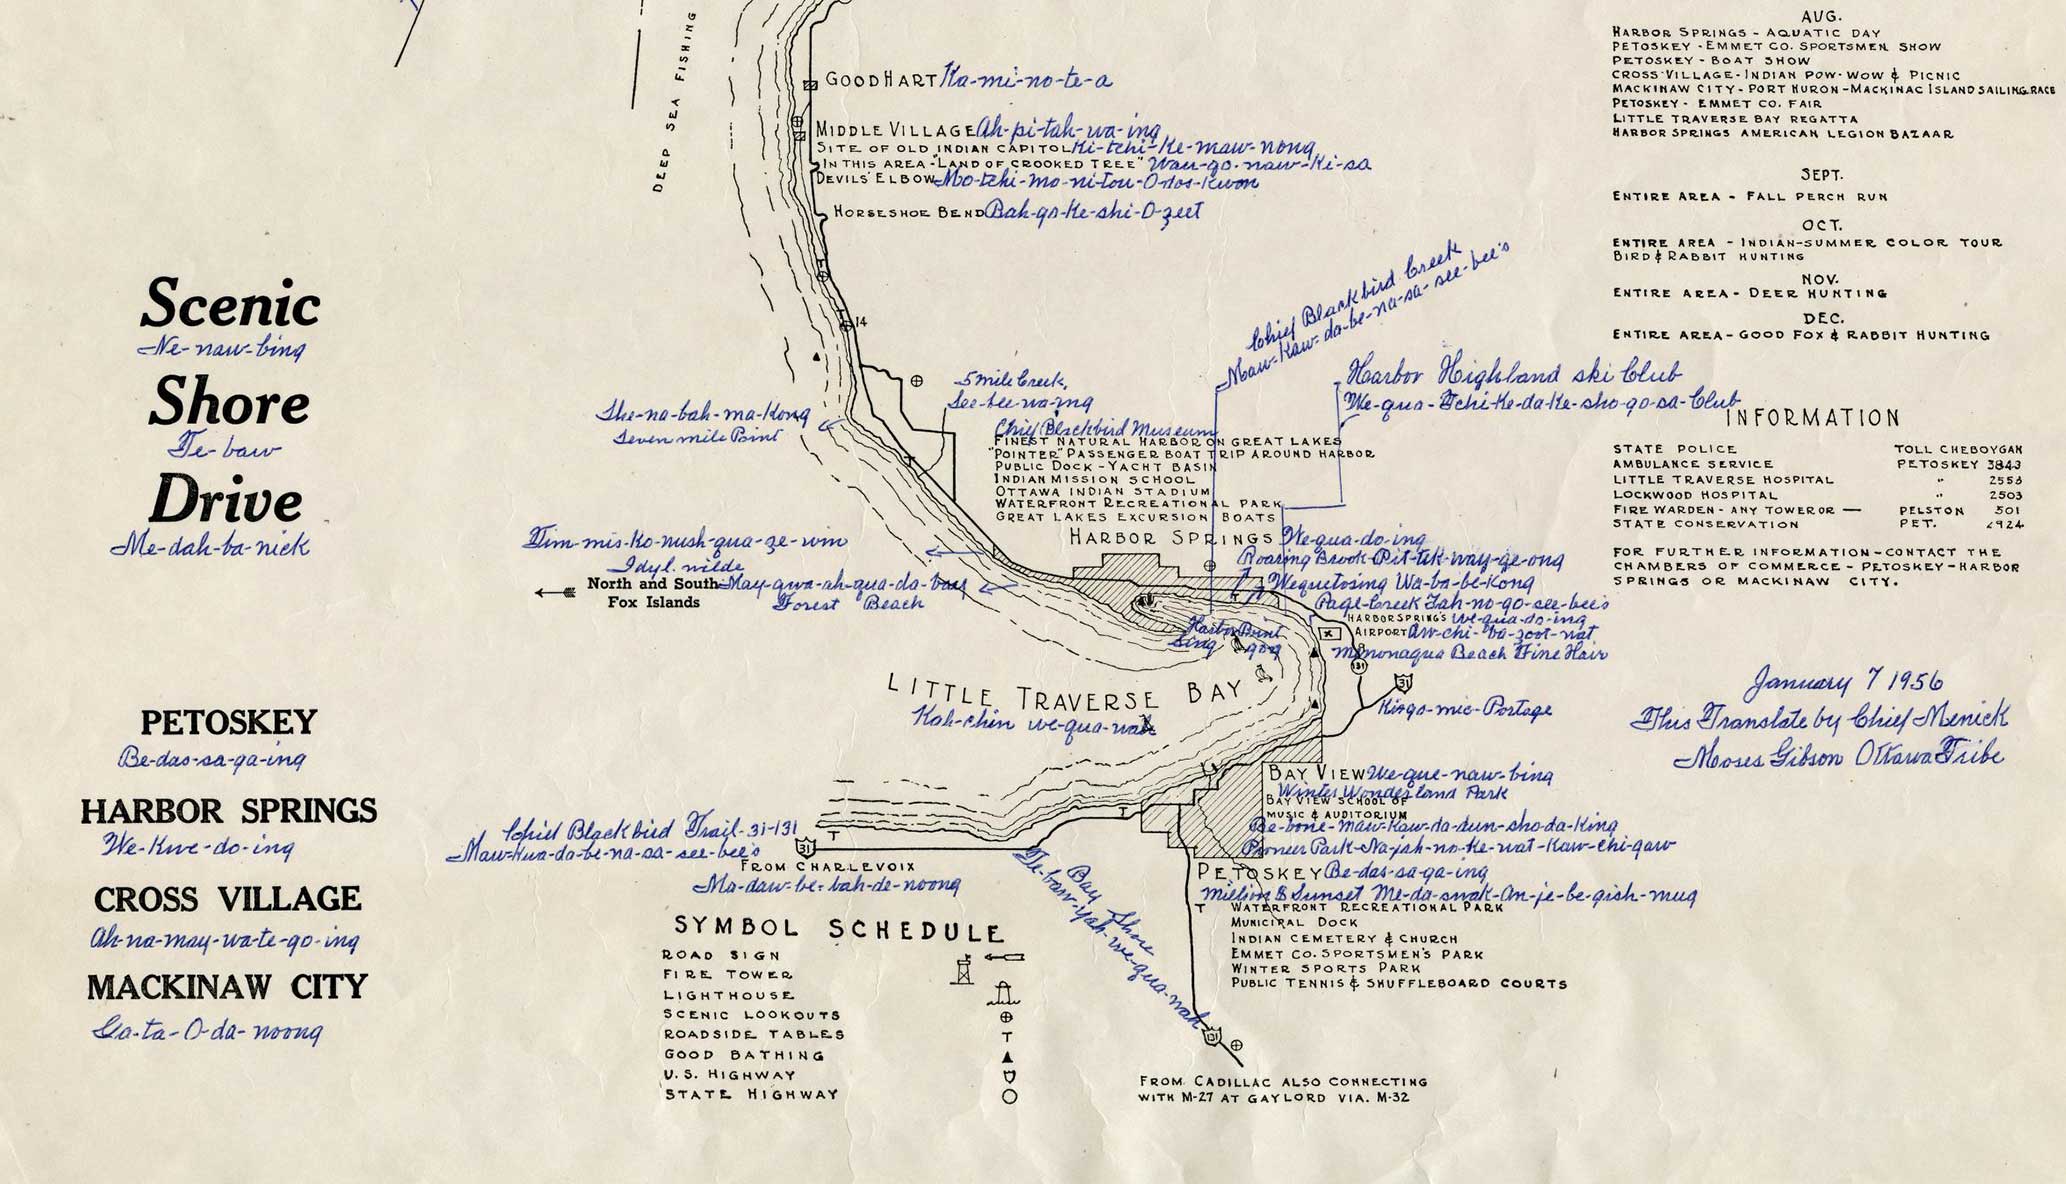 DEEP SEA FISHING
GOOD HART Ka-mi-no-te-a
MIDDLE VILLAGE Ah-pi-tah-wa-ing
SITE OF OLD INDIAN CAPITOL Ki-tchi-Ke-maw-nong
IN THIS AREA-"LAND OF CROOKED TREE" Wau-go-naw-Ki-sa
DEVILS' ELBOW Mo-tchi-mo-ni-tou-O-dos-Kwon
HORSESHOE BEND Bah-go-Ke-shi-O-zeet
14
Scenic
Ne-naw-bing
Shore
Te-baw
Drive
Me-dah-ba-nick
PETOSKEY
Be-das-sa-ga-ing
HARBOR SPRINGS
We-Kwe-do-ing
CROSS VILLAGE
Ah-na-may-wa-te-go-ing
MACKINAW CITY
Ga-ta-O-da-noong
AUG.
HARBOR SPRINGS - AQUATIC DAY
PETOSKEY - EMMET CO. SPORTSMEN SHOW
PETOSKEY - BOAT SHOW
CROSS VILLAGE - INDIAN POW-WOW & PICNIC
MACKINAW CITY - PORT HURON - MACKINAC ISLAND SAILING RACE
PETOSKEY - EMMET CO. FAIR
LITTLE TRAVERSE BAY REGATTA
HARBOR SPRINGS AMERICAN LEGION BAZAAR
SEPT.
ENTIRE AREA - FALL PERCH RUN
OCT.
ENTIRE AREA - INDIAN-SUMMER COLOR TOUR
BIRD & RABBIT HUNTING
NOV.
ENTIRE AREA - DEER HUNTING
DEC.
ENTIRE AREA - GOOD FOX & RABBIT HUNTING
Chief Blackbird Creek
Maw-Kaw-da-be-na-sa-see-bee's
Harbor Highland ski Club
We-qua-Tchi-Ke-da-Ke-sho-go-sa-Club
5 mile Creek,
See-bee-wa-ing
She-na-bah-ma-Kong
Seven mile Point
Chief Blackbird Museum
FINEST NATURAL HARBOR ON GREAT LAKES
"POINTER" PASSENGER BOAT TRIP AROUND HARBOR
PUBLIC DOCK - YACHT BASIN
INDIAN MISSION SCHOOL
OTTAWA INDIAN STADIUM
WATERFRONT RECREATIONAL PARK
GREAT LAKES EXCURSION BOATS
HARBOR SPRINGS We-qua-do-ing
Roaring Brook-Pit-tek-way-ge-ong
Wequetosing Wa-ba-be-Kong
Page-Creek Tah-no-go-see-bee's
HARBOR SPRINGS We-qua-do-ing
AIRPORT Aw-chi-ba-zoot-nat
Menonaqua Beach Fine Hair
Tim-mis-ko-nush-qua-ze-win
Idyl wilde
North and South
Fox Islands
May-gwa-ah-qua-da-baw
Forest Beach
Harbor Point
Sing gog
131
31
Kinga-mic-Portage
LITTLE TRAVERSE BAY
Kah-chin we-qua-nah
INFORMATION
STATE POLICE TOLL CHEBOYGAN
AMBULANCE SERVICE PETOSKEY 3843
LITTLE TRAVERSE HOSPITAL " 2553
LOCKWOOD HOSPITAL " 2503
FIRE WARDEN - ANY TOWER OR — PELSTON 501
STATE CONSERVATION PET. 2924
FOR FURTHER INFORMATION - CONTACT THE
CHAMBERS OF COMMERCE - PETOSKEY - HARBOR
SPRINGS OR MACKINAW CITY.
January 7 1956
This Translate by Chief Menick
Mooses Gibson Ottawa Tribe
BAY VIEW We-que-naw-bing
Winter Wonderland Park
BAY VIEW SCHOOL OF
MUSIC & AUDITORIUM
Be-bone-maw-Kaw-da-dun-sho-da-King
Pioneer Park-Na-jah-no-ke-wat-Kaw-chi-gaw
PETOSKEY Be-das-sa-ga-ing
Million $ Sunset Me-da-swak-An-je-be-gish-mug
WATERFRONT RECREATIONAL PARK
MUNICIPAL DOCK
INDIAN CEMETERY & CHURCH
EMMET CO. SPORTSMEN'S PARK
WINTER SPORTS PARK
PUBLIC TENNIS & SHUFFLEBOARD COURTS
Chief Blackbird Trail-31-131
Maw-Kwa-da-be-na-sa-see-bee's
31
FROM CHARLEVOIX
Ma-daw-be-bah-de-noong
Bay Shore
Te-baw-yah-we-qua-nah
131
FROM CADILLAC ALSO CONNECTING
WITH M-27 AT GAYLORD VIA. M-32
SYMBOL SCHEDULE
ROAD SIGN
FIRE TOWER
LIGHTHOUSE
SCENIC LOOKOUTS
ROADSIDE TABLES
GOOD BATHING
U.S. HIGHWAY
STATE HIGHWAY